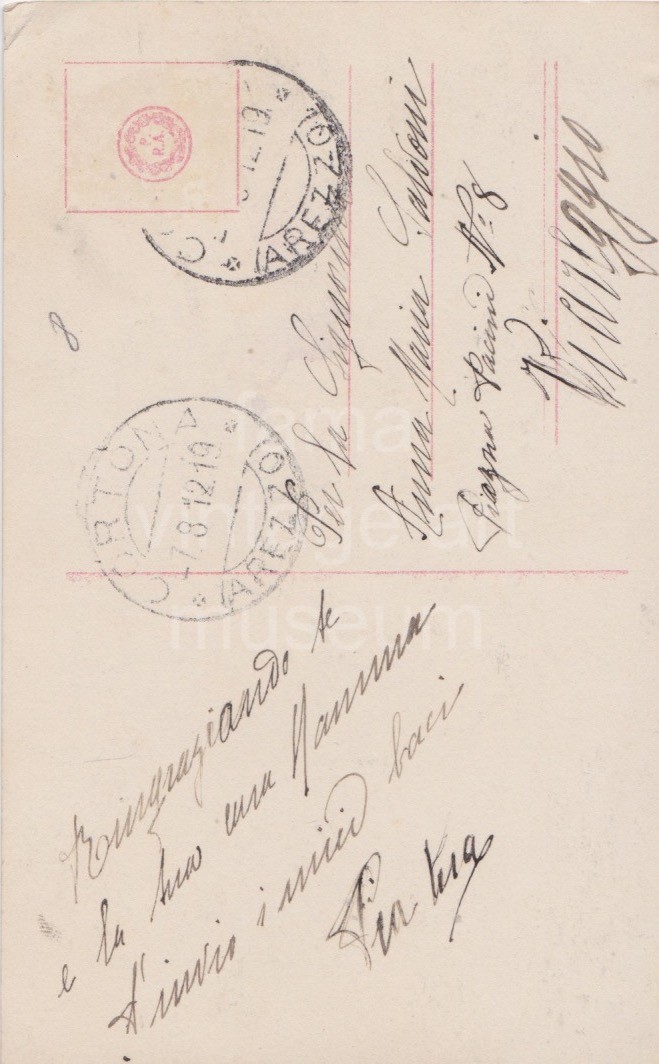 CORTONA
AREZZO
7.8.12.19
CORTONA
AREZZO
12.19
R.A.
8
Per la Signorina
Anna Maria
Piazza Pacini N: 8
Viareggio
Ringraziando te
e la tua cara Mamma
t'invio i miei baci
Pia
fama
vintage art
museum